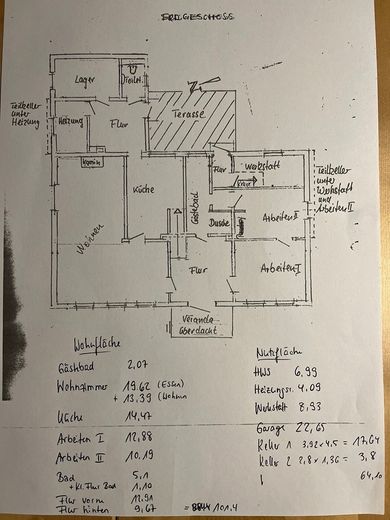 ERDGESCHOSS
Lager
Toilet.
Teilkeller
unter
Heizung
Heizung
Flur
Terasse
N
Kamin
Küche
Wohnen
Gästebad
Flur
Werkstatt
Dusche
Arbeiten II
Teilkeller
unter
Werkstatt
und
Arbeiten II
Flur
Arbeiten I
Veranda
überdacht
Wohnfläche
Gästbad 2,07
Wohnzimmer 19.62 (Essen)
+ 13,39 (Wohnen
Küche 14,47
Arbeiten I 12,88
Arbeiten II 10,19
Bad 5,1
+ kl. Flur Bad 1,10
Flur vorn 12.91
Flur hinten 9,67 = 101.4
Nutzfläche
HWS 6,99
Heizungsr. 4.09
Werkstatt 8,93
Garage 22,65
Keller 1 3,92 x 4,5 = 17,64
Keller 2 2,8 x 1,36 = 3,8
64,10